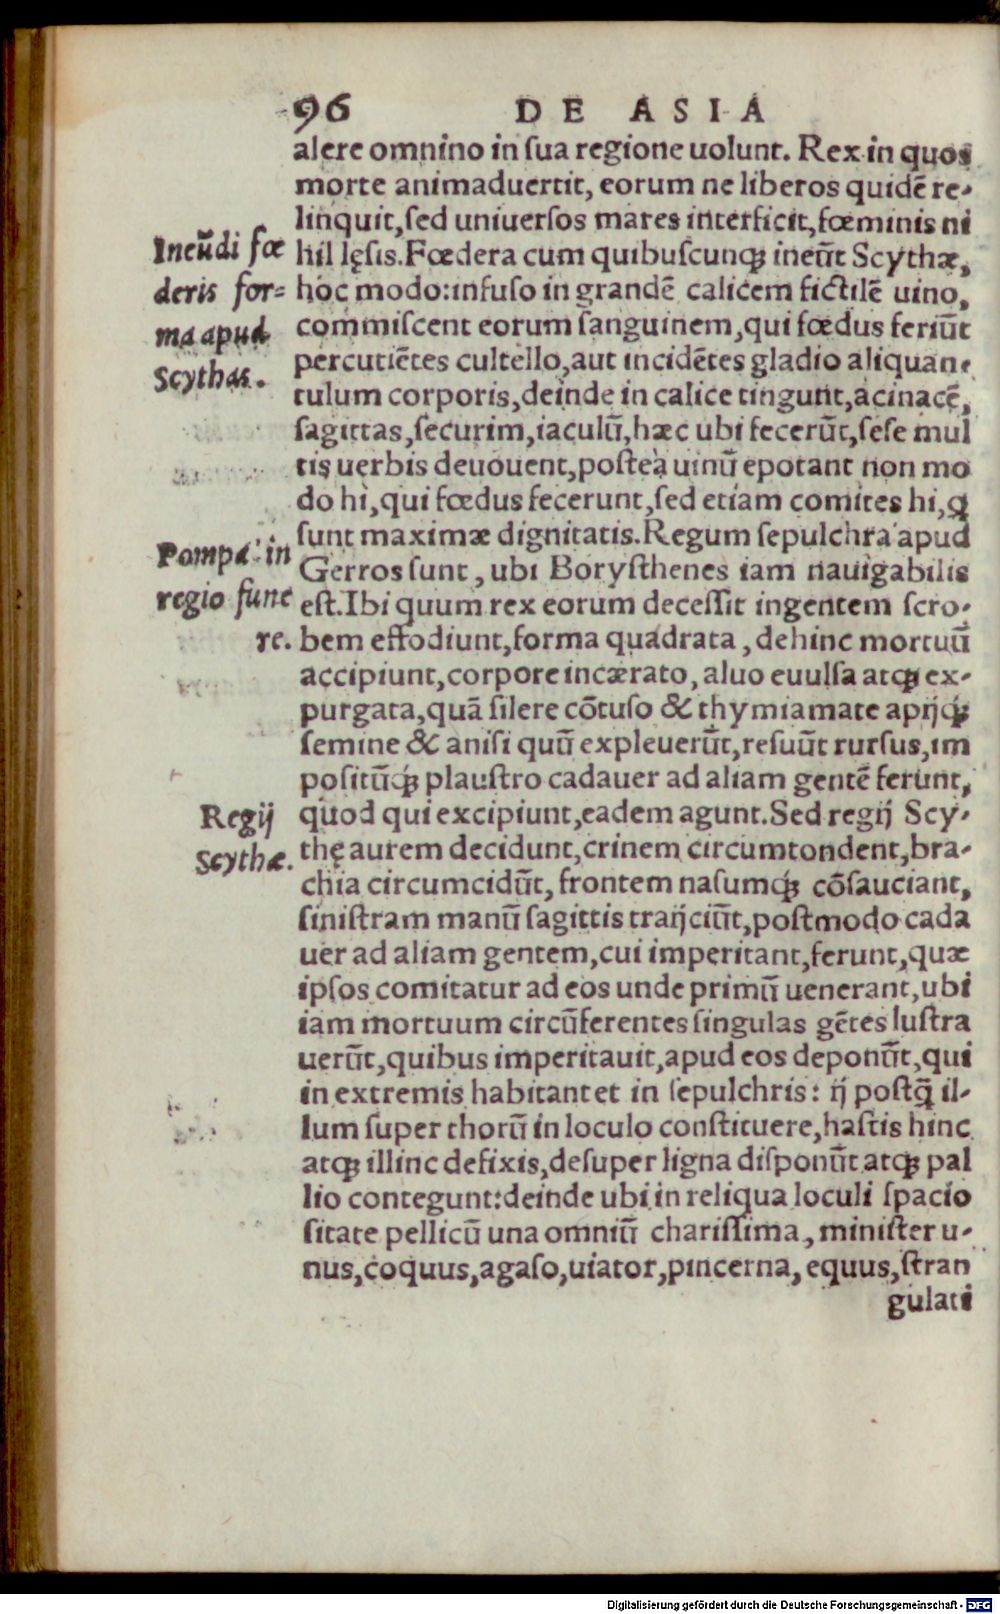 96 DE ASIA
alere omnino in ſua regione uolunt. Rex in quos
morte animaduertit, eorum ne liberos quidē re-
linquit, ſed uniuerſos mares interficit, fœminis ni
hil lęſis. Fœdera cum quibuſcunqꝫ ineūt Scythæ,
hoc modo: infuſo in grandē calicem fictilē uino,
commiſcent eorum ſanguinem, qui fœdus feriūt
percutiētes cultello, aut incidētes gladio aliquan-
tulum corporis, deinde in calice tingunt, acinacē,
ſagittas, ſecurim, iaculū, hæc ubi fecerūt, ſeſe mul
tis uerbis deuouent, poſtea uinū epotant non mo
do hi, qui fœdus fecerunt, ſed etiam comites hi, q
ſunt maximæ dignitatis. Regum ſepulchra apud
Gerros ſunt, ubi Boryſthenes iam nauigabilis
eſt. Ibi quum rex eorum deceſſit ingentem ſcro-
bem effodiunt, forma quadrata, dehinc mortuū
accipiunt, corpore incærato, aluo euulſa atqꝫ ex-
purgata, quā ſilere cōtuſo & thymiamate apijqꝫ
ſemine & aniſi quū expleuerūt, reſuūt rurſus, im
poſitūqꝫ plauſtro cadauer ad aliam gentē ferunt,
quod qui excipiunt, eadem agunt. Sed regij Scy-
thę aurem decidunt, crinem circumtondent, bra-
chia circumcidūt, frontem naſumqꝫ cōſauciant,
ſiniſtram manū ſagittis traijciūt, poſtmodo cada
uer ad aliam gentem, cui imperitant, ferunt, quæ
ipſos comitatur ad eos unde primū uenerant, ubi
iam mortuum circūferentes ſingulas gētes luſtra
uerūt, quibus imperitauit, apud eos deponūt, qui
in extremis habitant et in ſepulchris: ij poſtq̄ il-
lum ſuper thorū in loculo conſtituere, haſtis hinc
atqꝫ illinc defixis, deſuper ligna diſponūt atqꝫ pal
lio contegunt: deinde ubi in reliqua loculi ſpacio
ſitate pellicū una omniū chariſſima, miniſter u-
nus, coquus, agaſo, uiator, pincerna, equus, ſtran
gulati
Ineūdi fœ
deris for=
ma apud
Scythas.
Pompa in
regio fune
re.
Regij
Scythæ.
Digitalisierung gefördert durch die Deutsche Forschungsgemeinschaft - DFG